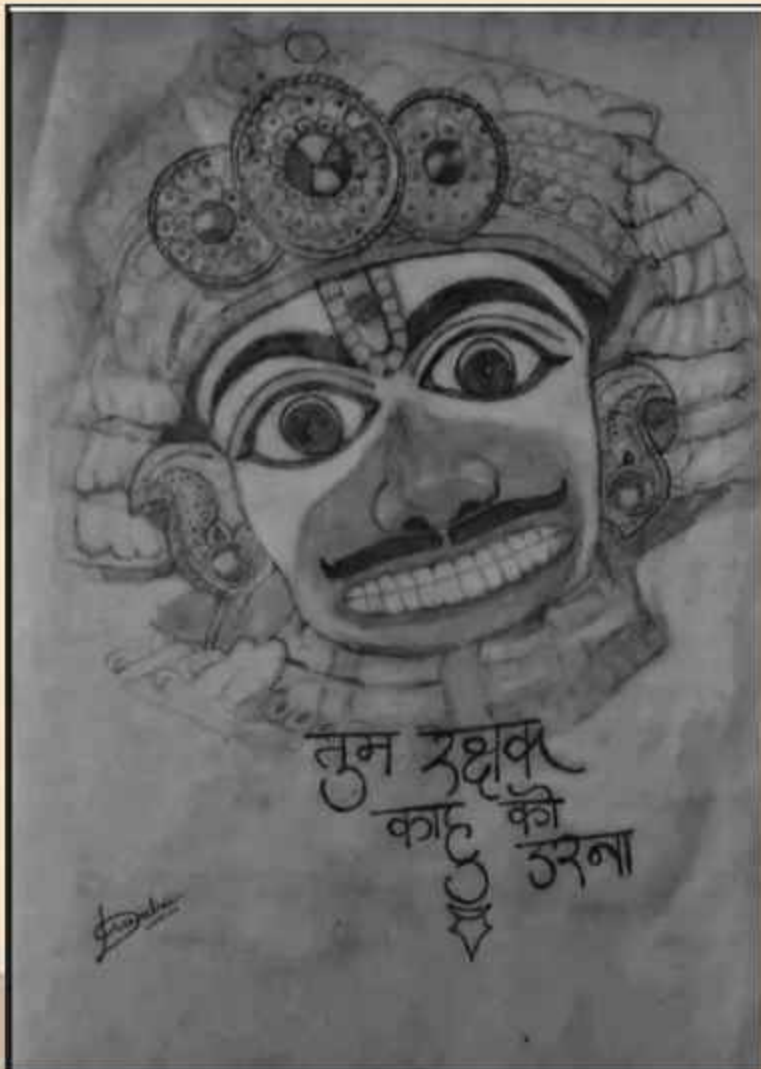 तुम रक्षक
काहु को
डरना